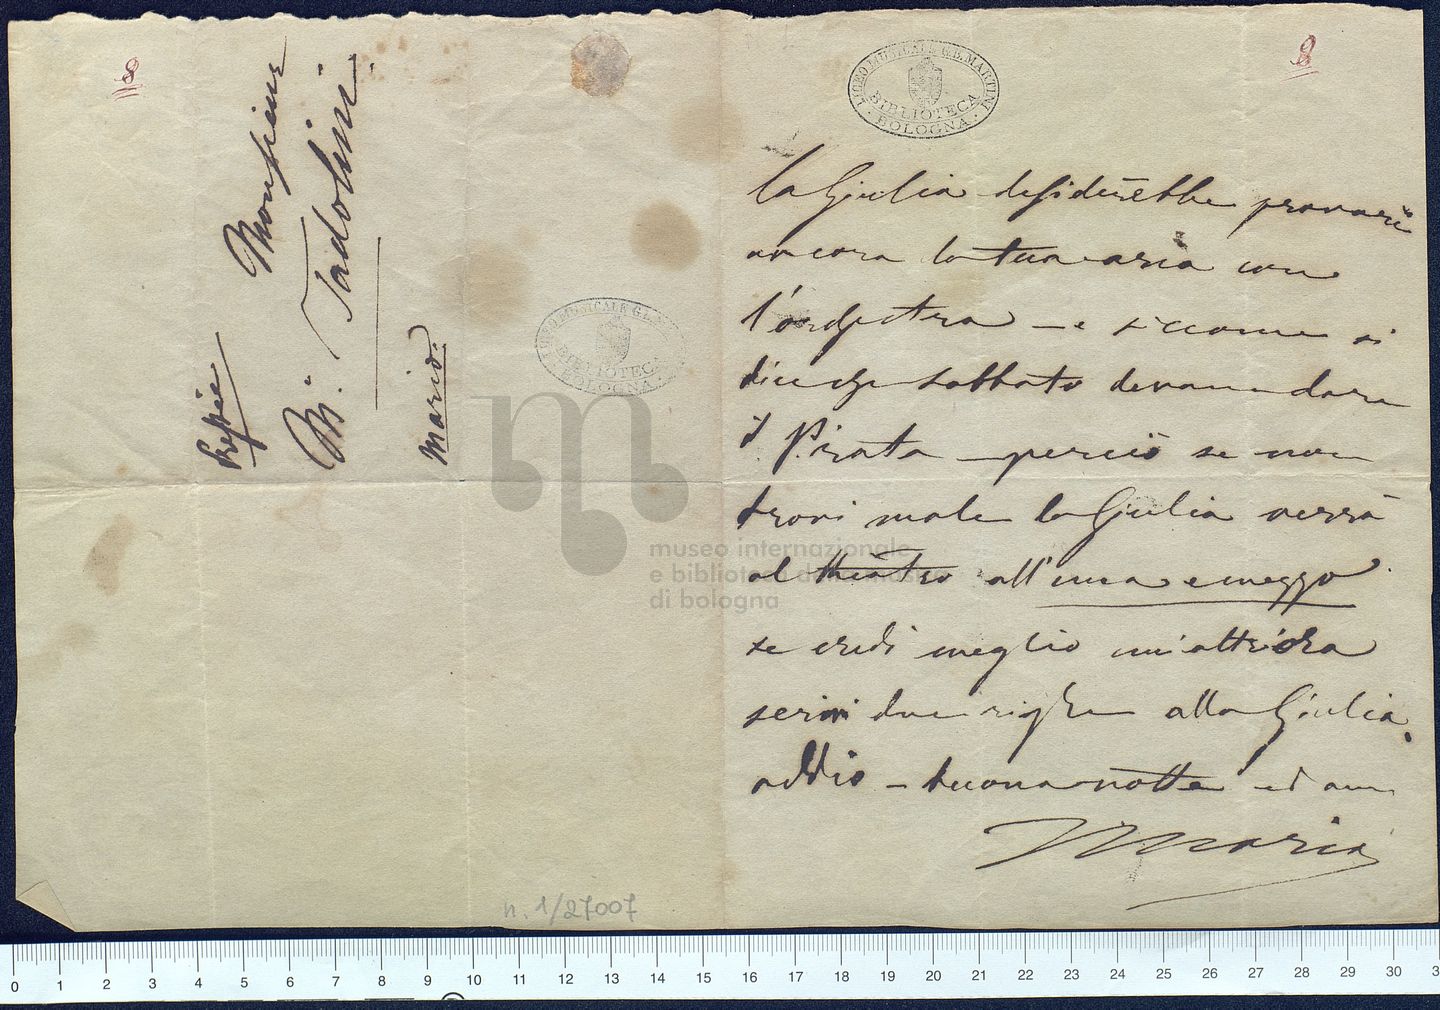 8
Monsieur
M.r Tadolini
Mario.
LICEO MUSICALE G.B. MARTINI
BIBLIOTECA
BOLOGNA
8
La Giulia desiderebbe provare
ancora la tua aria con
l'orchestra – e siccome si
dice che sabbato devono dare
il Pirata – perciò se non
trovi male la Giulia verrà
al theatro all'una e mezzo
se credi meglio un'altr'ora
scrivi due righe alla Giulia.
addio – buona notte ed am
Mario
LICEO MUSICALE G.B.
BIBLIOTECA
BOLOGNA
museo internazionale
e biblioteca della musica
di bologna
n. 1/27007
0 1 2 3 4 5 6 7 8 9 10 11 12 13 14 15 16 17 18 19 20 21 22 23 24 25 26 27 28 29 30 3